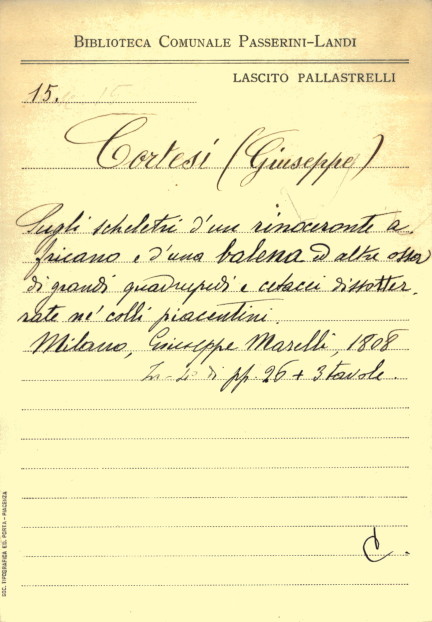 BIBLIOTECA COMUNALE PASSERINI-LANDI
LASCITO PALLASTRELLI
15.
Cortesi (Giuseppe)
Sugli scheletri d'un rinoceronte a
fricano e d'una balena ed altre ossa
di grandi quadrupedi e cetacei dissotter
rate ne' colli piacentini.
Milano, Giuseppe Marelli, 1808
In-4° di pp. 26 + 3 tavole.
C.
SOC. TIPOGRAFICA ED. PORTA - PIACENZA